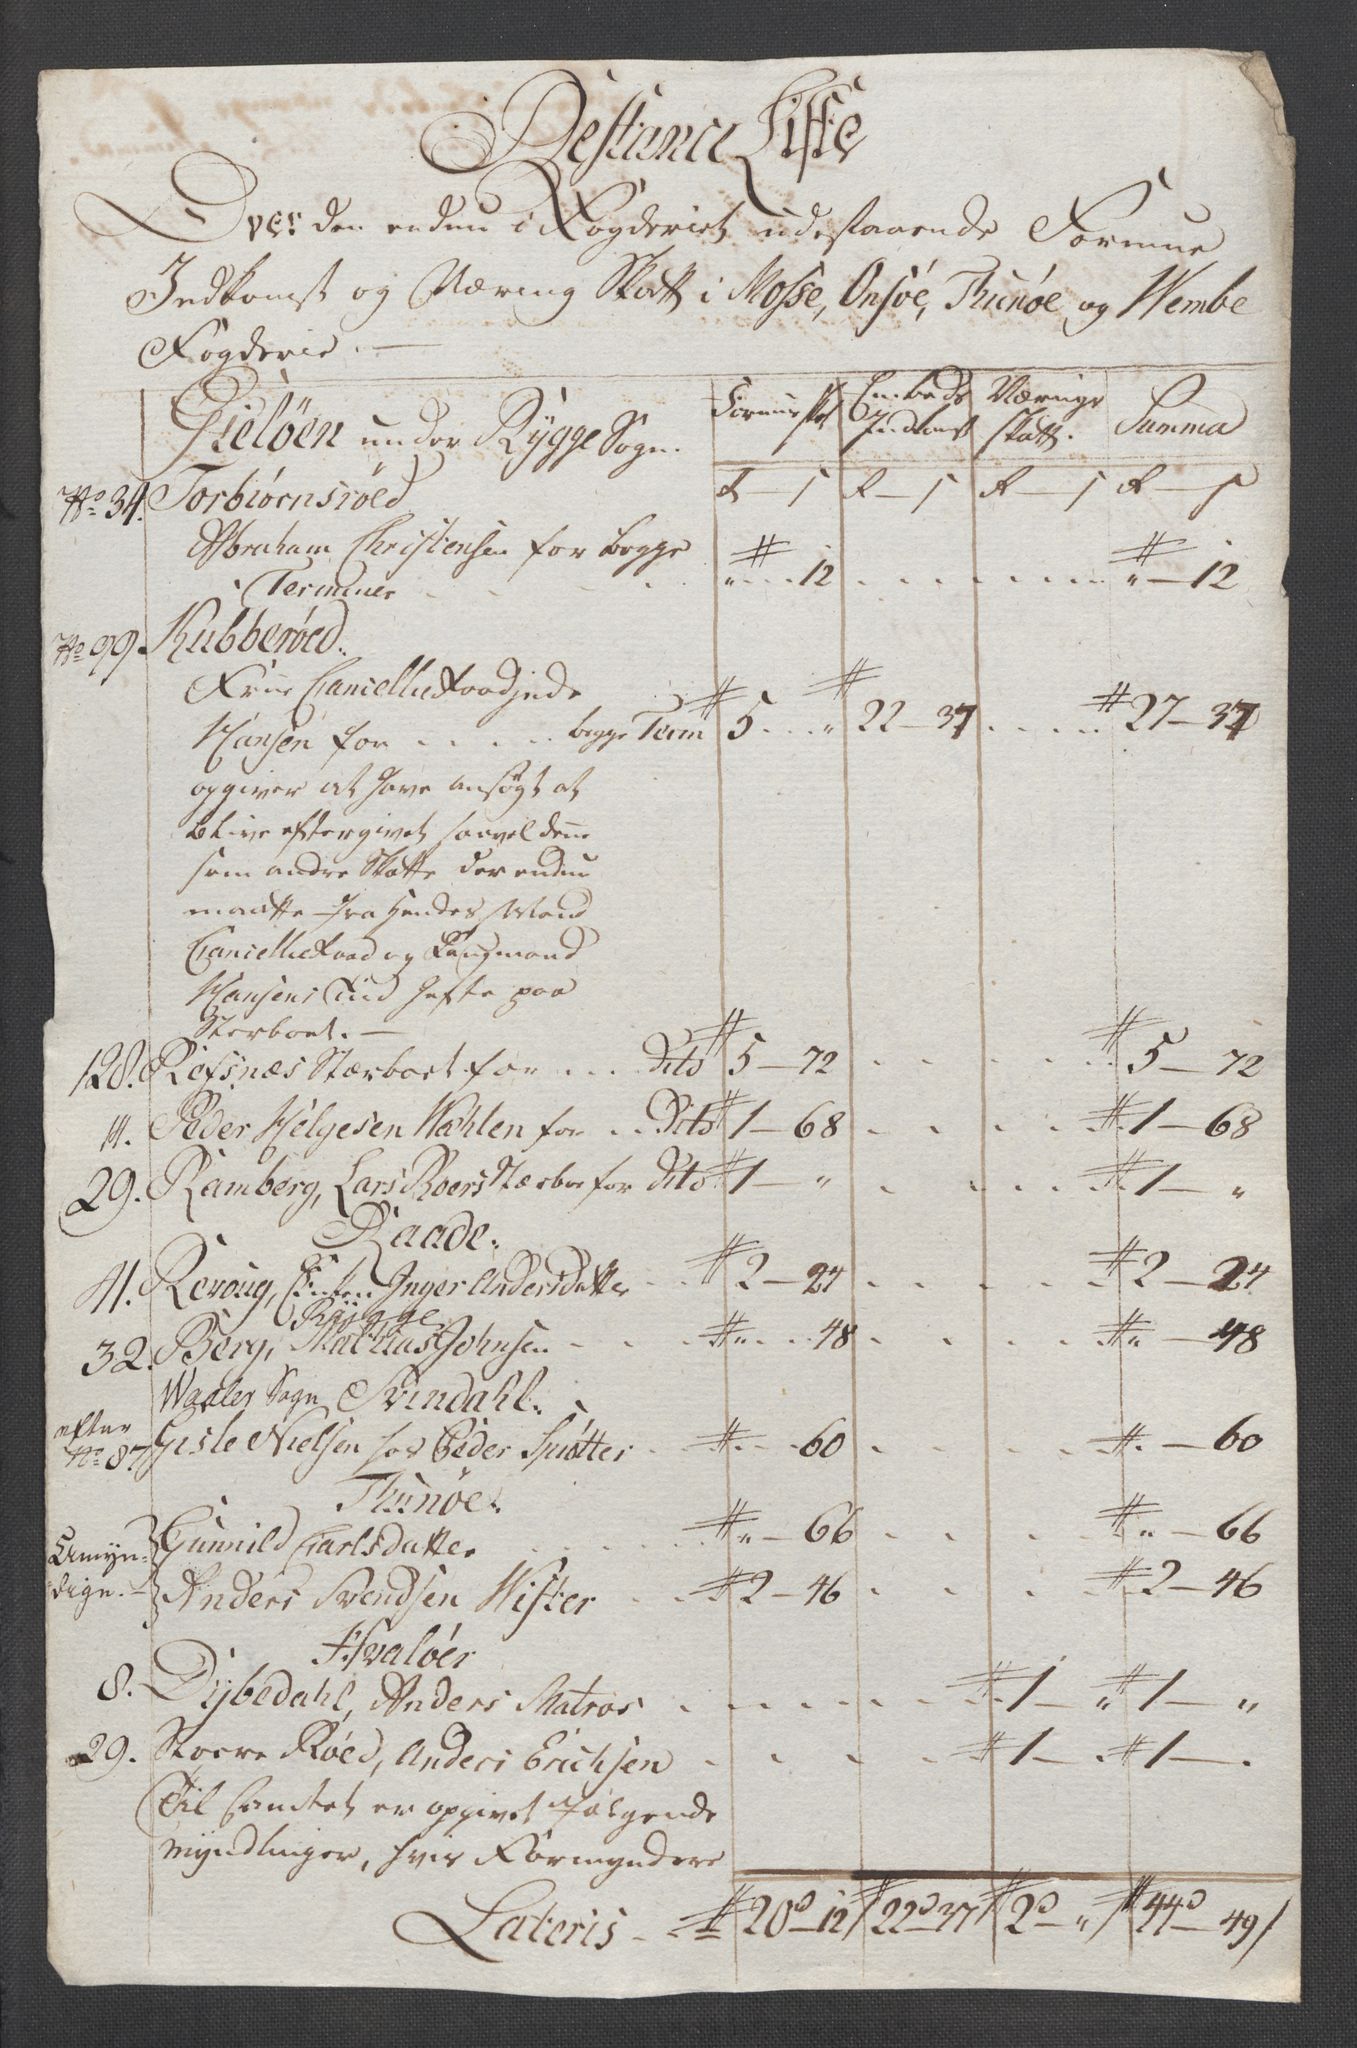 Restance Liste
Over den endnu i Fogderiet udestaaende Formue
Indkomst og Næring Skatt i Mosse, Onsøe, Thunøe og Wembe
Fogderie. —
Gieløen under Rygge Sogn. Formue Skat Embeds Indkomst Nærings Skatt. Summa
No 34. Torbiørnsrøed R — s R — s R — s R — s
Abraham Christensen for begge
Terminer # „ 12 # „ — 12
No 99. Kubberøed.
Frue Cancellieraadinde
Hansen for . . . . . begge Term # 5 . . . „ # 22 — 37 # 27 — 37
opgiver at have ansøgt at
blive eftergivet saavel denne
som andre Skatte der endnu
maatte fra hendes Mand
Cancellieraad og
Hansens Tiid hefte paa
Sterboet. —
128. Refsnæs Stærboet for . . . Dito # 5 — 72 # 5 — 72
11. Peder Helgesen Wahlen for . . Dito # 1 — 68 # 1 — 68
29. Ramberg, Lars Roers Stærboe for Dito # 1 — „ # 1 — „
Raade.
41. Reroug, Enken Inger Andersdatter # 2 — 24 # 2 — 24
Rygge
32. Berg, Mathias Johnsen # „ . . 48 # „ — 48
Waaler Sogn Svindahl.
efter
No 87. Gisle Nielsen hos Peder Spiøtter # . . . 60 # . — 60
Thunøe.
Umyn- Gunnild Carlsdatter # „ — 66 # „ — 66
dige. — Anders Svendsen Wister # 2 — 46 # 2 — 46
Hvaløer
8. Dybedahl, Anders Matros # 1 — „ # 1 — „
29. Stoere Røed, Anders Erichsen # 1 — . # 1 — .
Til Contoet er opgivet følgende
Myndlinger, hvis Formyndere
Lateris — # 20 — 12 / # 22 — 37 / # 2 — „ / # 44 — 49 /